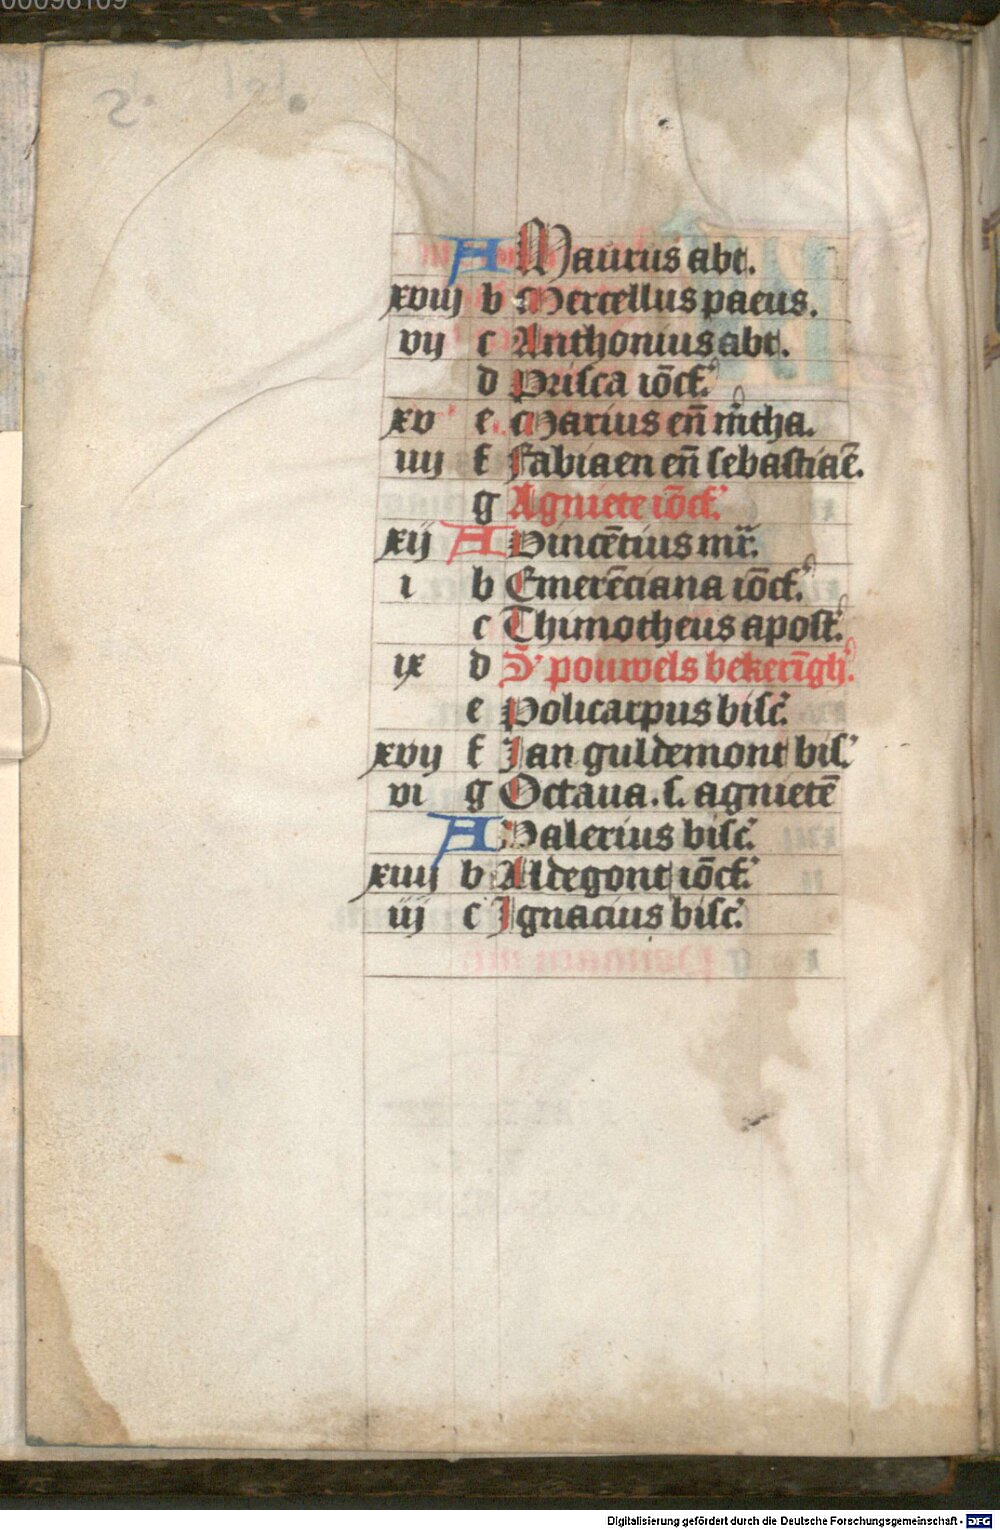 00098109
A Maurus abt.
xviij b Mercellus paeus.
vij c Anthonius abt.
d Prisca iōcf.
xv e Marius en̄ m̄tha.
iiij f Fabiaen en̄ sebastiaē.
g Agniete iōcf.
xij A Vincētius mr̄.
i b Emerēciana iōcf.
c Thimotheus apost.
ix d S' pouwels bekerīgh.
e Policarpus bisc.
xvij f Jan guldemont bis.
vi g Octaua. s. agnietē
A Valerius bisc.
xiiij b Aldegont iōcf.
iij c Ignacius bisc.
Digitalisierung gefördert durch die Deutsche Forschungsgemeinschaft - DFG